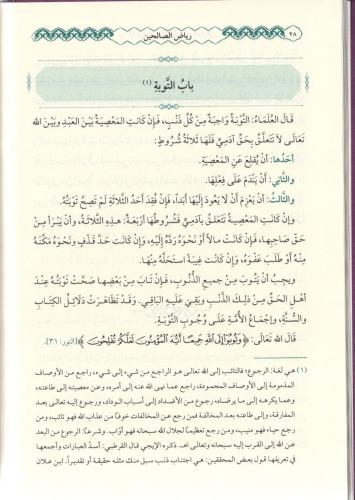 ٢٨
رياض الصالحين
بابُ التَّوبةِ (١)
قَالَ العُلَمَاءُ: التَّوْبَةُ وَاجِبَةٌ مِنْ كُلِّ ذَنْبٍ، فَإِنْ كَانَتِ المَعْصِيَةُ بَيْنَ العَبْدِ وَبَيْنَ اللهِ
تَعَالَى لاَ تَتَعَلَّقُ بِحَقِّ آدَمِيٍّ فَلَهَا ثَلاَثَةُ شُرُوطٍ:
أَحَدُها: أَنْ يُقْلِعَ عَنِ المَعْصِيَةِ.
والثَّانِي: أَنْ يَنْدَمَ عَلَى فِعْلِهَا.
وَالثَّالِثُ: أَنْ يَعْزِمَ أَنْ لاَ يَعُودَ إِلَيْهَا أَبَداً، فَإِنْ فُقِدَ أَحَدُ الثَّلاَثَةِ لَمْ تَصِحَّ تَوْبَتُهُ.
وَإِنْ كَانَتِ المَعْصِيَةُ تَتَعَلَّقُ بِآدَمِيٍّ فَشُرُوطُهَا أَرْبَعَةٌ: هٰذِهِ الثَّلاَثَةُ، وَأَنْ يَبْرَأَ مِنْ
حَقِّ صَاحِبِهَا، فَإِنْ كَانَتْ مَالاً أَوْ نَحْوَهُ رَدَّهُ إِلَيْهِ، وَإِنْ كَانَتْ حَدَّ قَذْفٍ وَنَحْوَهُ مَكَّنَهُ
مِنْهُ أَوْ طَلَبَ عَفْوَهُ، وَإِنْ كَانَت غِيبَةً اسْتَحَلَّهُ مِنْهَا.
ويجِبُ أَنْ يَتُوبَ مِنْ جَمِيعِ الذُّنُوبِ، فَإِنْ تَابَ مِنْ بَعْضِهَا صَحَّتْ تَوْبَتُهُ عِنْدَ
أَهْلِ الحَقِّ مِنْ ذٰلِكَ الذَّنْبِ وبَقِيَ عَلَيهِ البَاقِي. وَقَدْ تَظَاهَرَتْ دَلاَئِلُ الكِتَابِ
والسُّنَّةِ، وإجْمَاعِ الأُمَّةِ عَلَى وُجُوبِ التَّوْبَةِ.
قَالَ اللهُ تَعَالَى: ﴿وَتُوبُوٓا۟ إِلَى ٱللَّهِ جَمِيعًا أَيُّهَ ٱلْمُؤْمِنُونَ لَعَلَّكُمْ تُفْلِحُونَ﴾ [النور: ٣١].
(١) هي لغة: الرجوع؛ فالتائب إلى الله تعالى هو الراجع من شيء إلى شيء، راجع من الأوصاف
المذمومة إلى الأوصاف المحمودة، راجع عما نهى الله عنه إلى أمره، وعن معصيته إلى طاعته،
وعما يكرهه إلى ما يرضاه، رجوع من الأضداد إلى أسباب الوداد، ورجوع إليه تعالى بعد
المفارقة، وإلى طاعته بعد المخالفة فمن رجع عن المخالفات خوفًا من عذاب الله فهو تائب، ومن
رجع حياء فهو منيب، ومن رجع تعظيمًا لجلال الله سبحانه فهو أوّاب. وشرعًا: الرجوع من البعد
عن الله إلى القرب إليه سبحانه وتعالى اهـ. ذكره الإيجي قال القرطبي: أسدّ العبارات وأجمعها
في تعريفها قول بعض المحققين: هي اجتناب ذنب سبق منك مثله حقيقة أو تقديراً. ابن علان